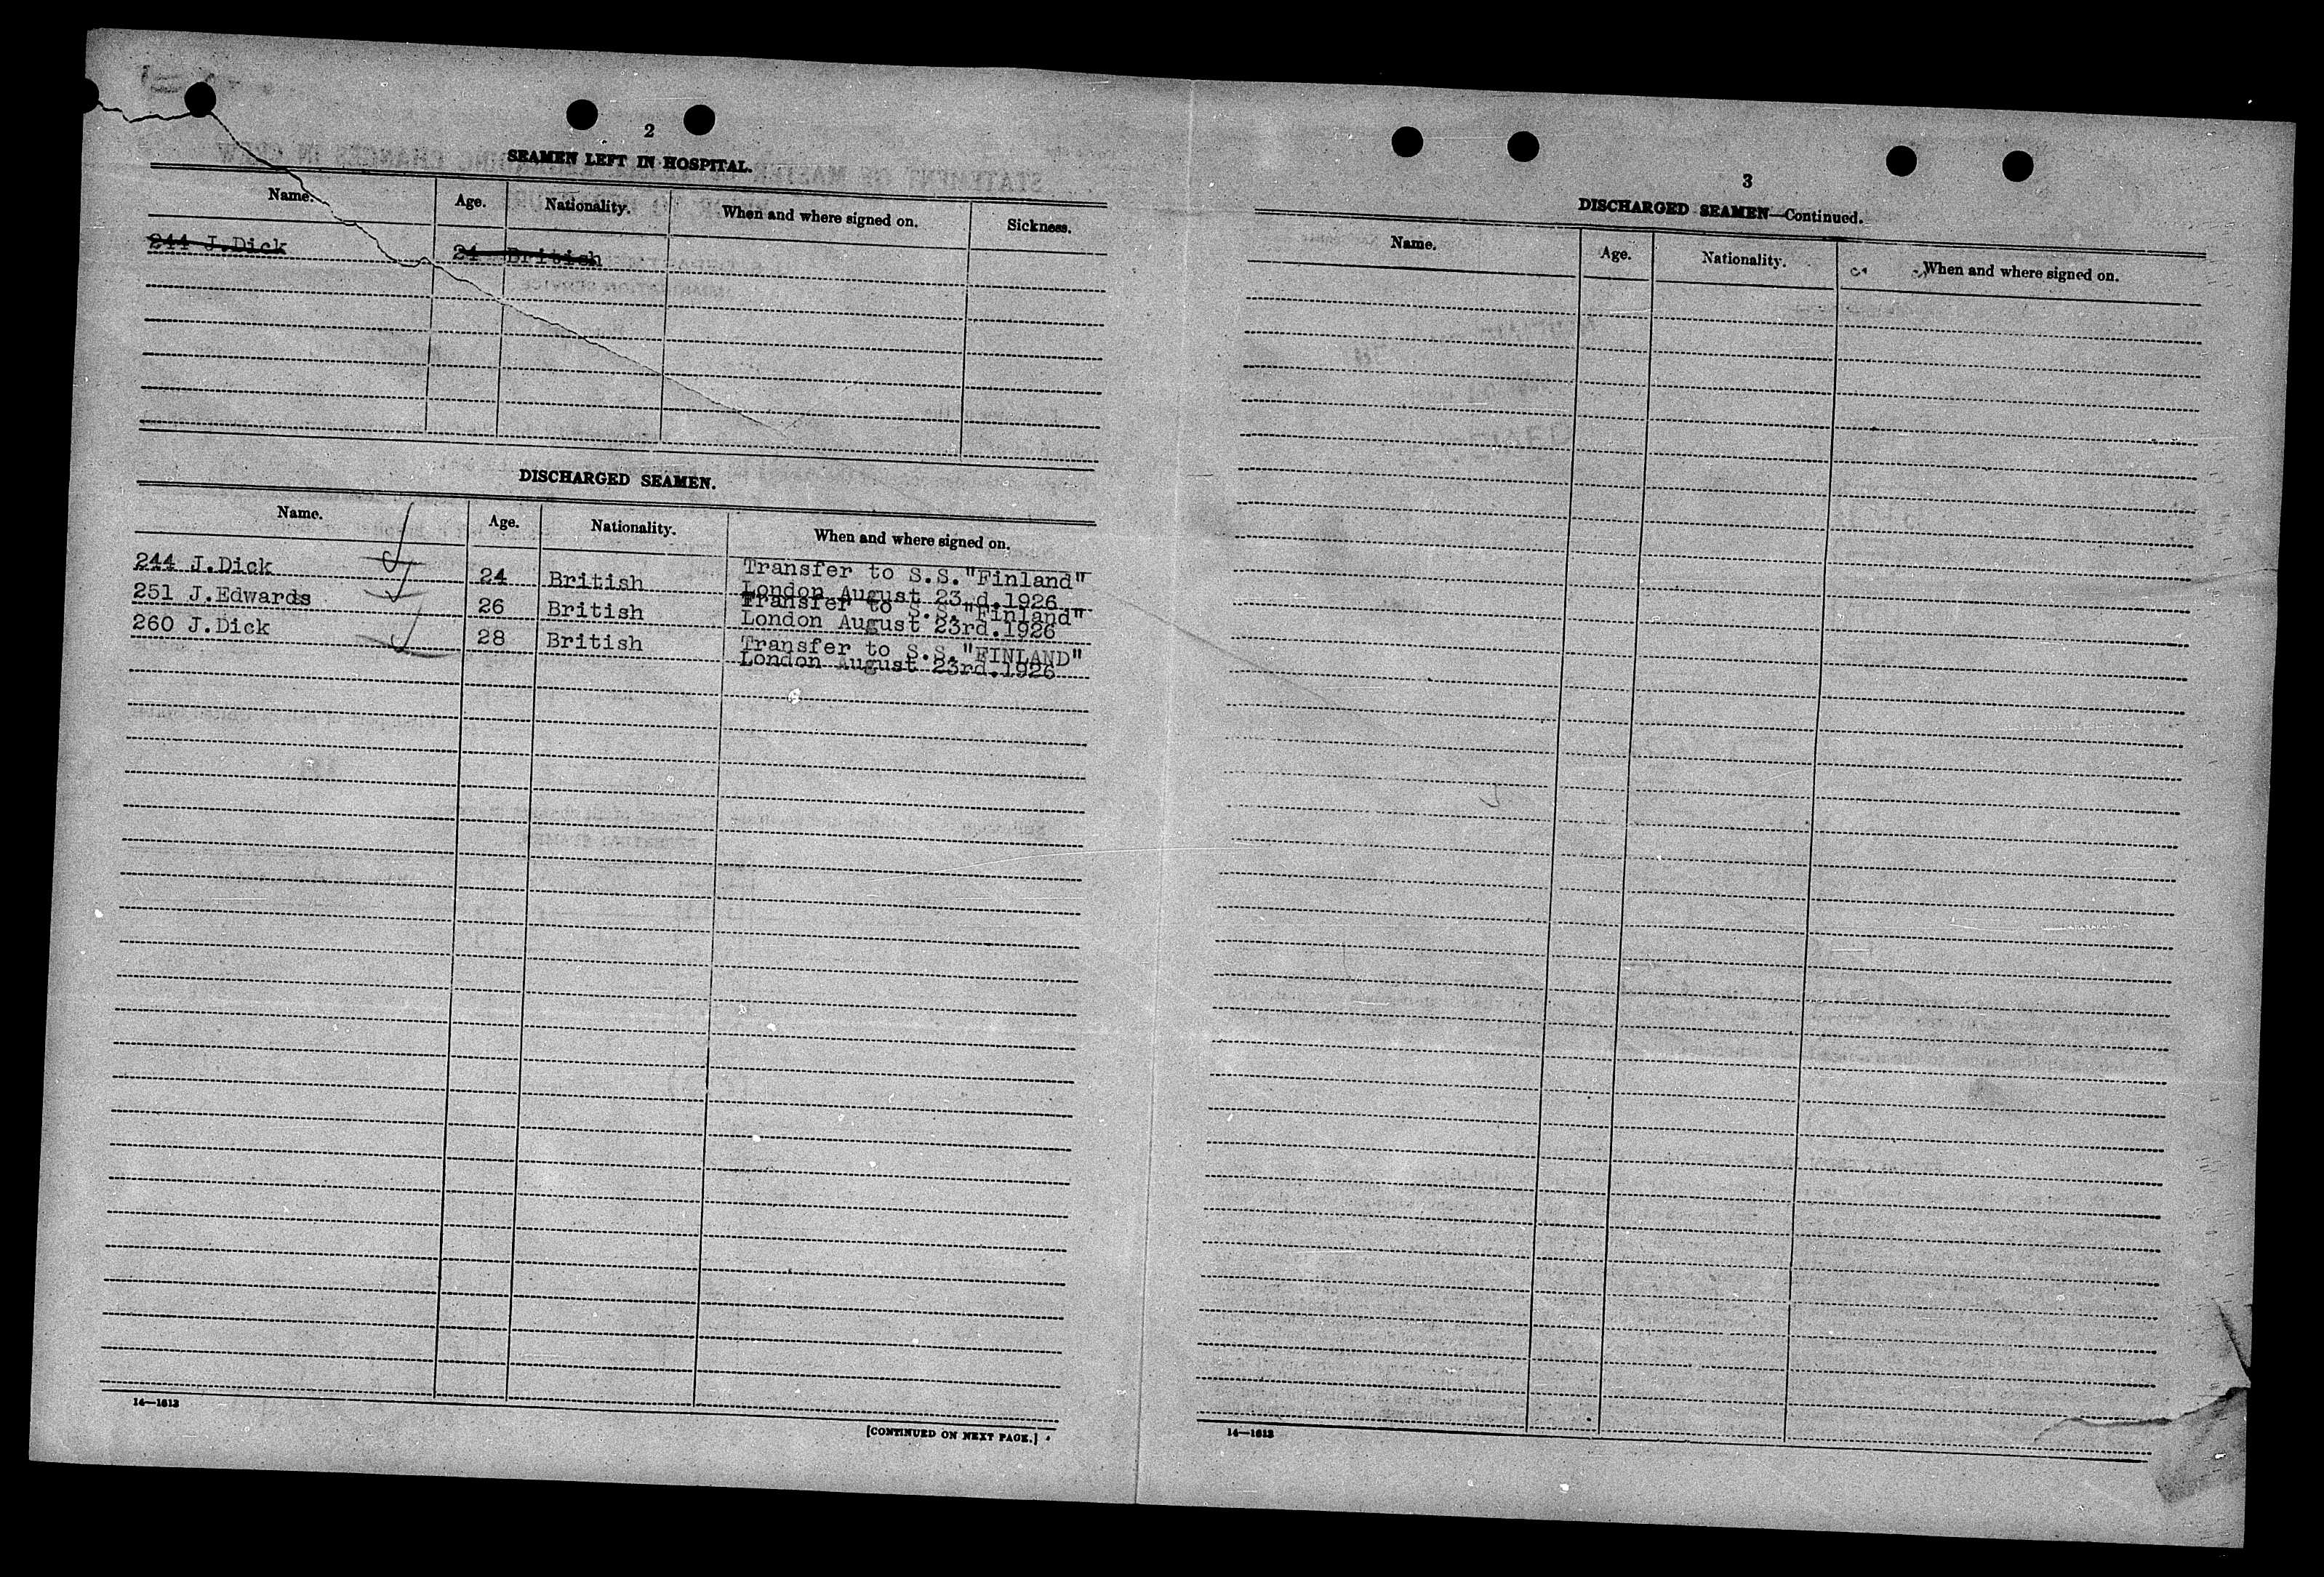 2
SEAMEN LEFT IN HOSPITAL.
Name. Age. Nationality. When and where signed on. Sickness.
244 J.Dick 24 British
DISCHARGED SEAMEN.
Name. Age. Nationality. When and where signed on.
244 J.Dick 24 British Transfer to S.S."Finland"
London August 23.d.1926
251 J.Edwards 26 British Transfer to S.S."Finland"
London August 23rd.1926
260 J.Dick 28 British Transfer to S.S."FINLAND"
London August 23rd.1926
14—1613
[CONTINUED ON NEXT PAGE.]
3
DISCHARGED SEAMEN—Continued.
Name. Age. Nationality. When and where signed on.
14—1613